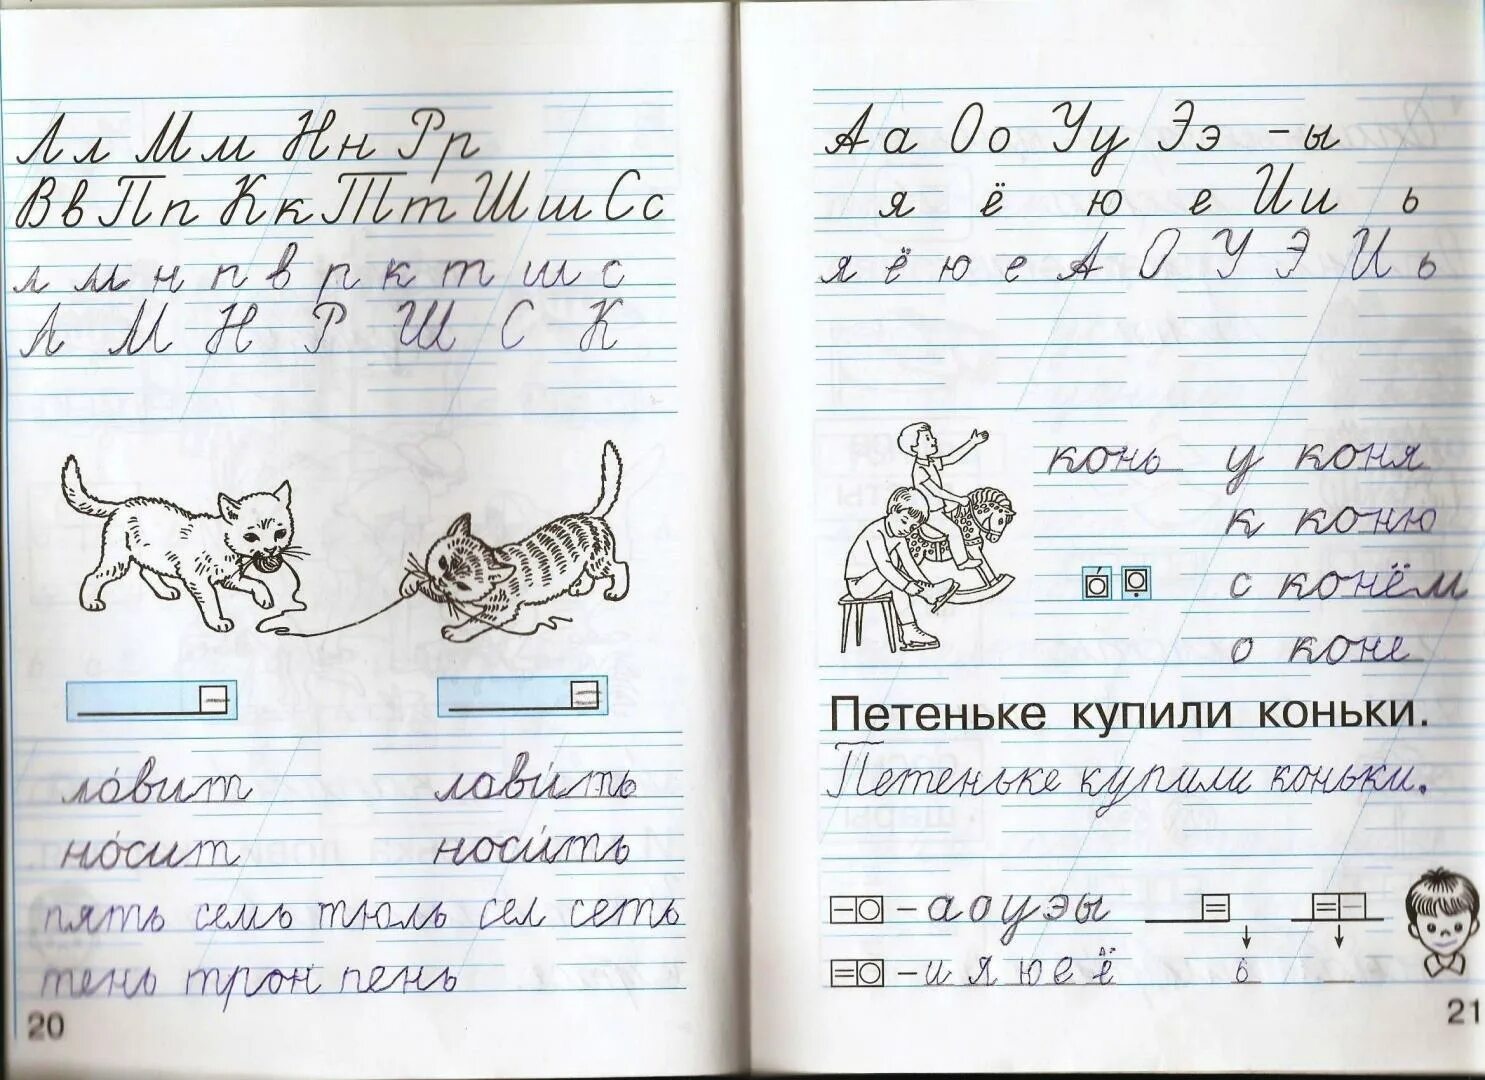 Лл Мм Нн Рр
Вв Пп Кк Тт Шш Сс
л м н п в р к т ш с
Л М Н Р Ш С К
ло́вит лови́ть
но́сит носи́ть
пять семь тюль сел сеть
тень трон пень
20
Аа Оо Уу Ээ -ы
я ё ю е Ии ь
я ё ю е А О У Э И ь
конь у коня
к коню
с конём
о коне
Петеньке купили коньки.
Петеньке купили коньки.
– а о у э ы
– и я ю е ё
ь
21